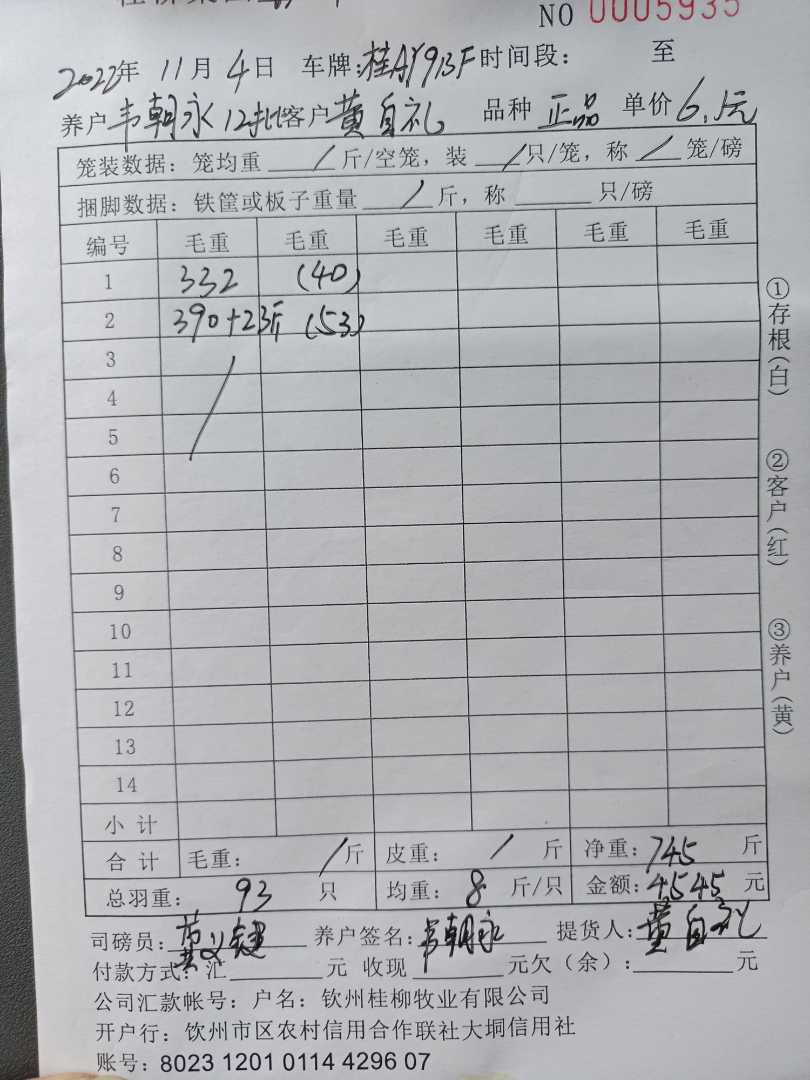 NO 0005935
2022年 11月 4日 车牌:桂AY91BF 时间段: 至
养户 韦朝永 12批 客户 黄自礼 品种 正品 单价 6.1元
笼装数据: 笼均重 / 斤/空笼, 装 / 只/笼, 称 / 笼/磅
捆脚数据: 铁筐或板子重量 / 斤, 称 只/磅
编号 毛重 毛重 毛重 毛重 毛重 毛重
1 332 (40)
2 390+23斤 (53)
3 /
4
5
6
7
8
9
10
11
12
13
14
小计
合计 毛重: / 斤 皮重: / 斤 净重: 745 斤
总羽重: 93 只 均重: 8 斤/只 金额: 4545 元
司磅员: 黄义健 养户签名: 韦朝永 提货人: 黄自礼
付款方式: 汇 元 收现 元欠(余): 元
公司汇款帐号: 户名: 钦州桂柳牧业有限公司
开户行: 钦州市区农村信用合作联社大垌信用社
账号: 8023 1201 0114 4296 07
①存根(白)
②客户(红)
③养户(黄)